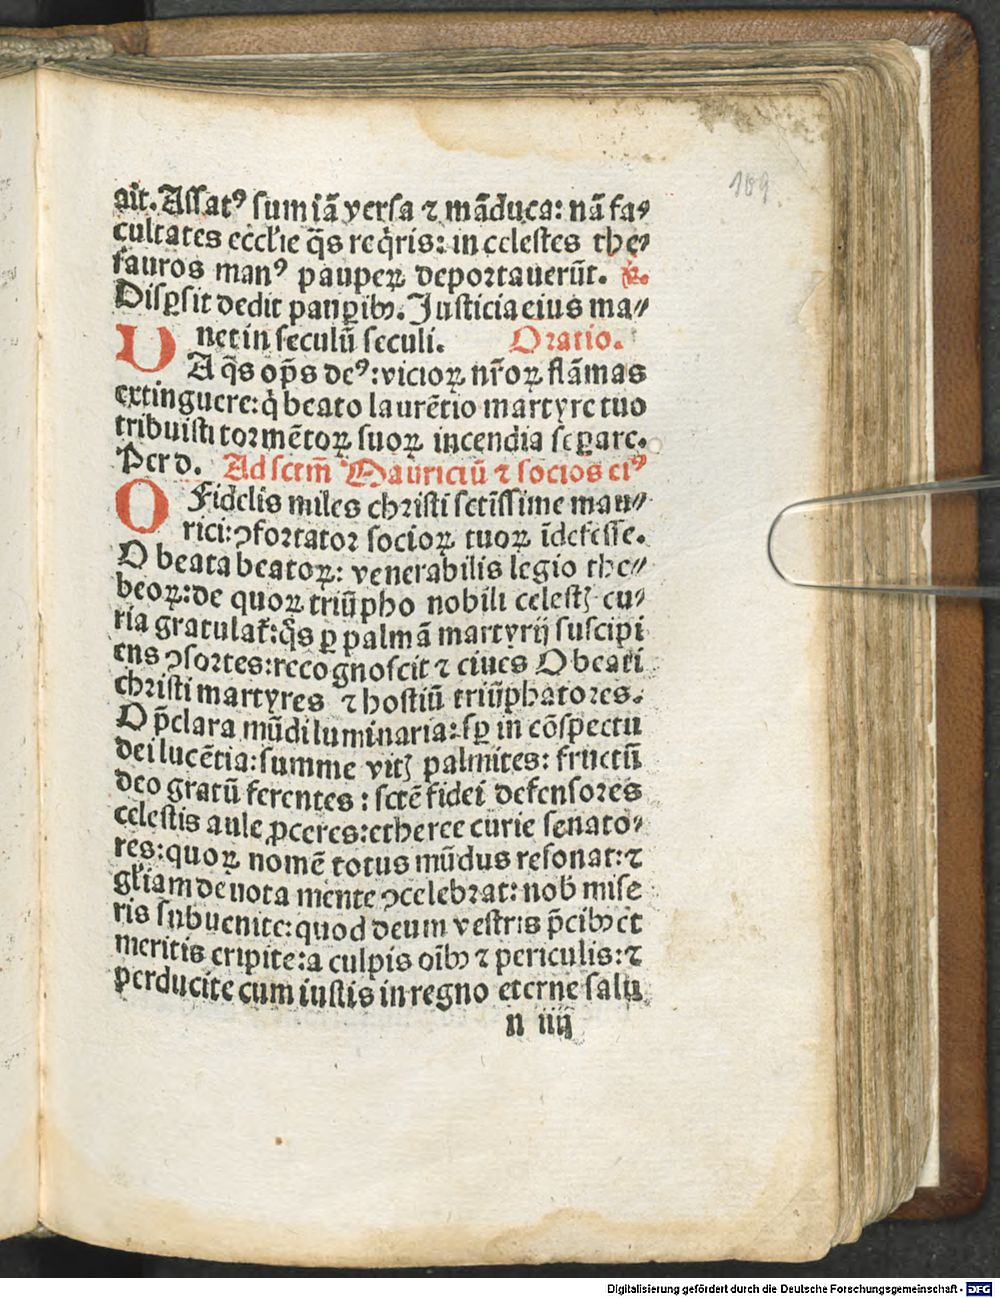 189
ait. Assatꝰ sum iã versa ⁊ mãduca: nã fa⸗
cultates eccl'ie q̃s reqͥris: in celestes the⸗
sauros manꝰ pauperꝝ deportauerũt. ℣.
Disꝑsit dedit pauꝑibꝫ. Justicia eius ma⸗
net in seculũ seculi. Oratio.
DA q̃s op̃s deꝰ: vicioꝝ nr̃oꝝ flãmas
extinguere: qͥ beato laurẽtio martyre tuo
tribuisti tormẽtoꝝ suoꝝ incendia seꝑare.
Per d. Ad sctm̃ Mauriciũ ⁊ socios eiꝰ
O Fidelis miles christi sctissime mau⸗
rici: ꝯfortator socioꝝ tuoꝝ ĩdefesse.
O beata beatoꝝ: venerabilis legio the⸗
beoꝝ: de quoꝝ triũpho nobili celestꝭ cu⸗
ria gratulat̃: q̃s ꝑ palmã martyrij suscipi
ens ꝯsortes: recognoscit ⁊ ciues O beati
christi martyres ⁊ hostiũ triũphatores.
O p̃clara mũdi luminaria: sꝑ in cõspectu
dei lucẽtia: summe vitꝭ palmites: fructũ
deo gratũ ferentes: sctẽ fidei defensores
celestis aule ꝓceres: etheree curie senato⸗
res: quoꝝ nomẽ totus mũdus resonat: ⁊
gl'iam deuota mente ꝯcelebrat: nob mise
ris subuenite: quod deum vestris p̃cibꝫ et
meritis eripite: a culpis oĩbꝫ ⁊ periculis: ⁊
perducite cum iustis in regno eterne salu
n iiij
Digitalisierung gefördert durch die Deutsche Forschungsgemeinschaft - DFG